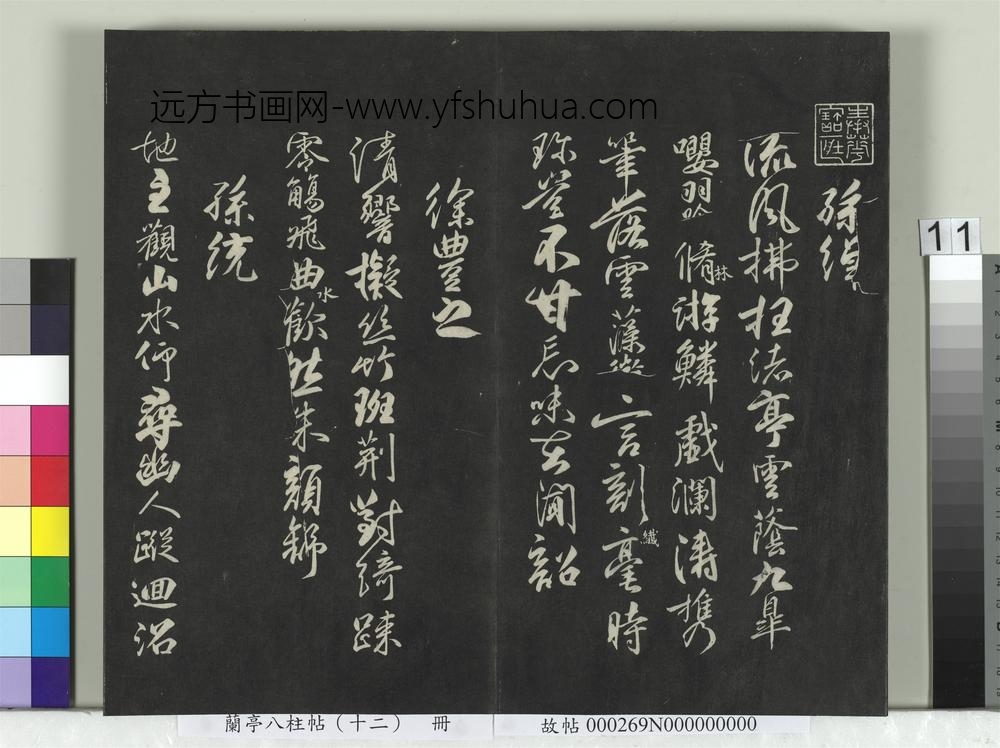 遠方书画网-www.yfshuhua.com
孫綽
流風拂枉渚亭雲蔭九皋
嚶羽吟脩林游鱗戲瀾濤攜
筆落雲藻微言剖纖毫時
珍豈不甘忘味在聞韶
徐豐之
清響擬絲竹班荊對綺疎
零觴飛曲水歡然朱顏舒
孫統
地主觀山水仰尋幽人蹤迴沼
11
蘭亭八柱帖（十二） 冊
故帖 000269N000000000